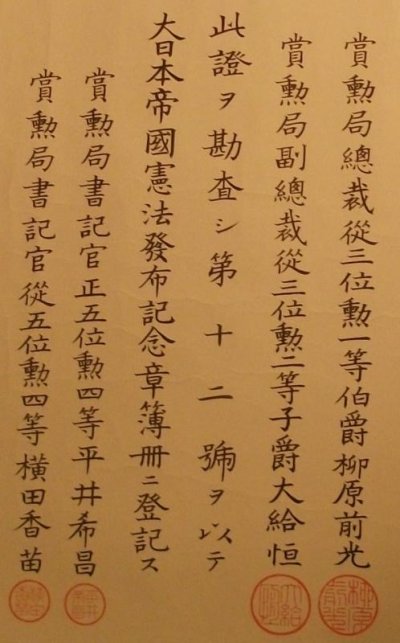 賞勲局總裁從三位勲一等伯爵柳原前光
賞勲局副總裁從三位勲二等子爵大給恒
此證ヲ勘査シ第十二號ヲ以テ
大日本帝國憲法發布記念章簿册ニ登記ス
賞勲局書記官正五位勲四等平井希昌
賞勲局書記官從五位勲四等横田香苗